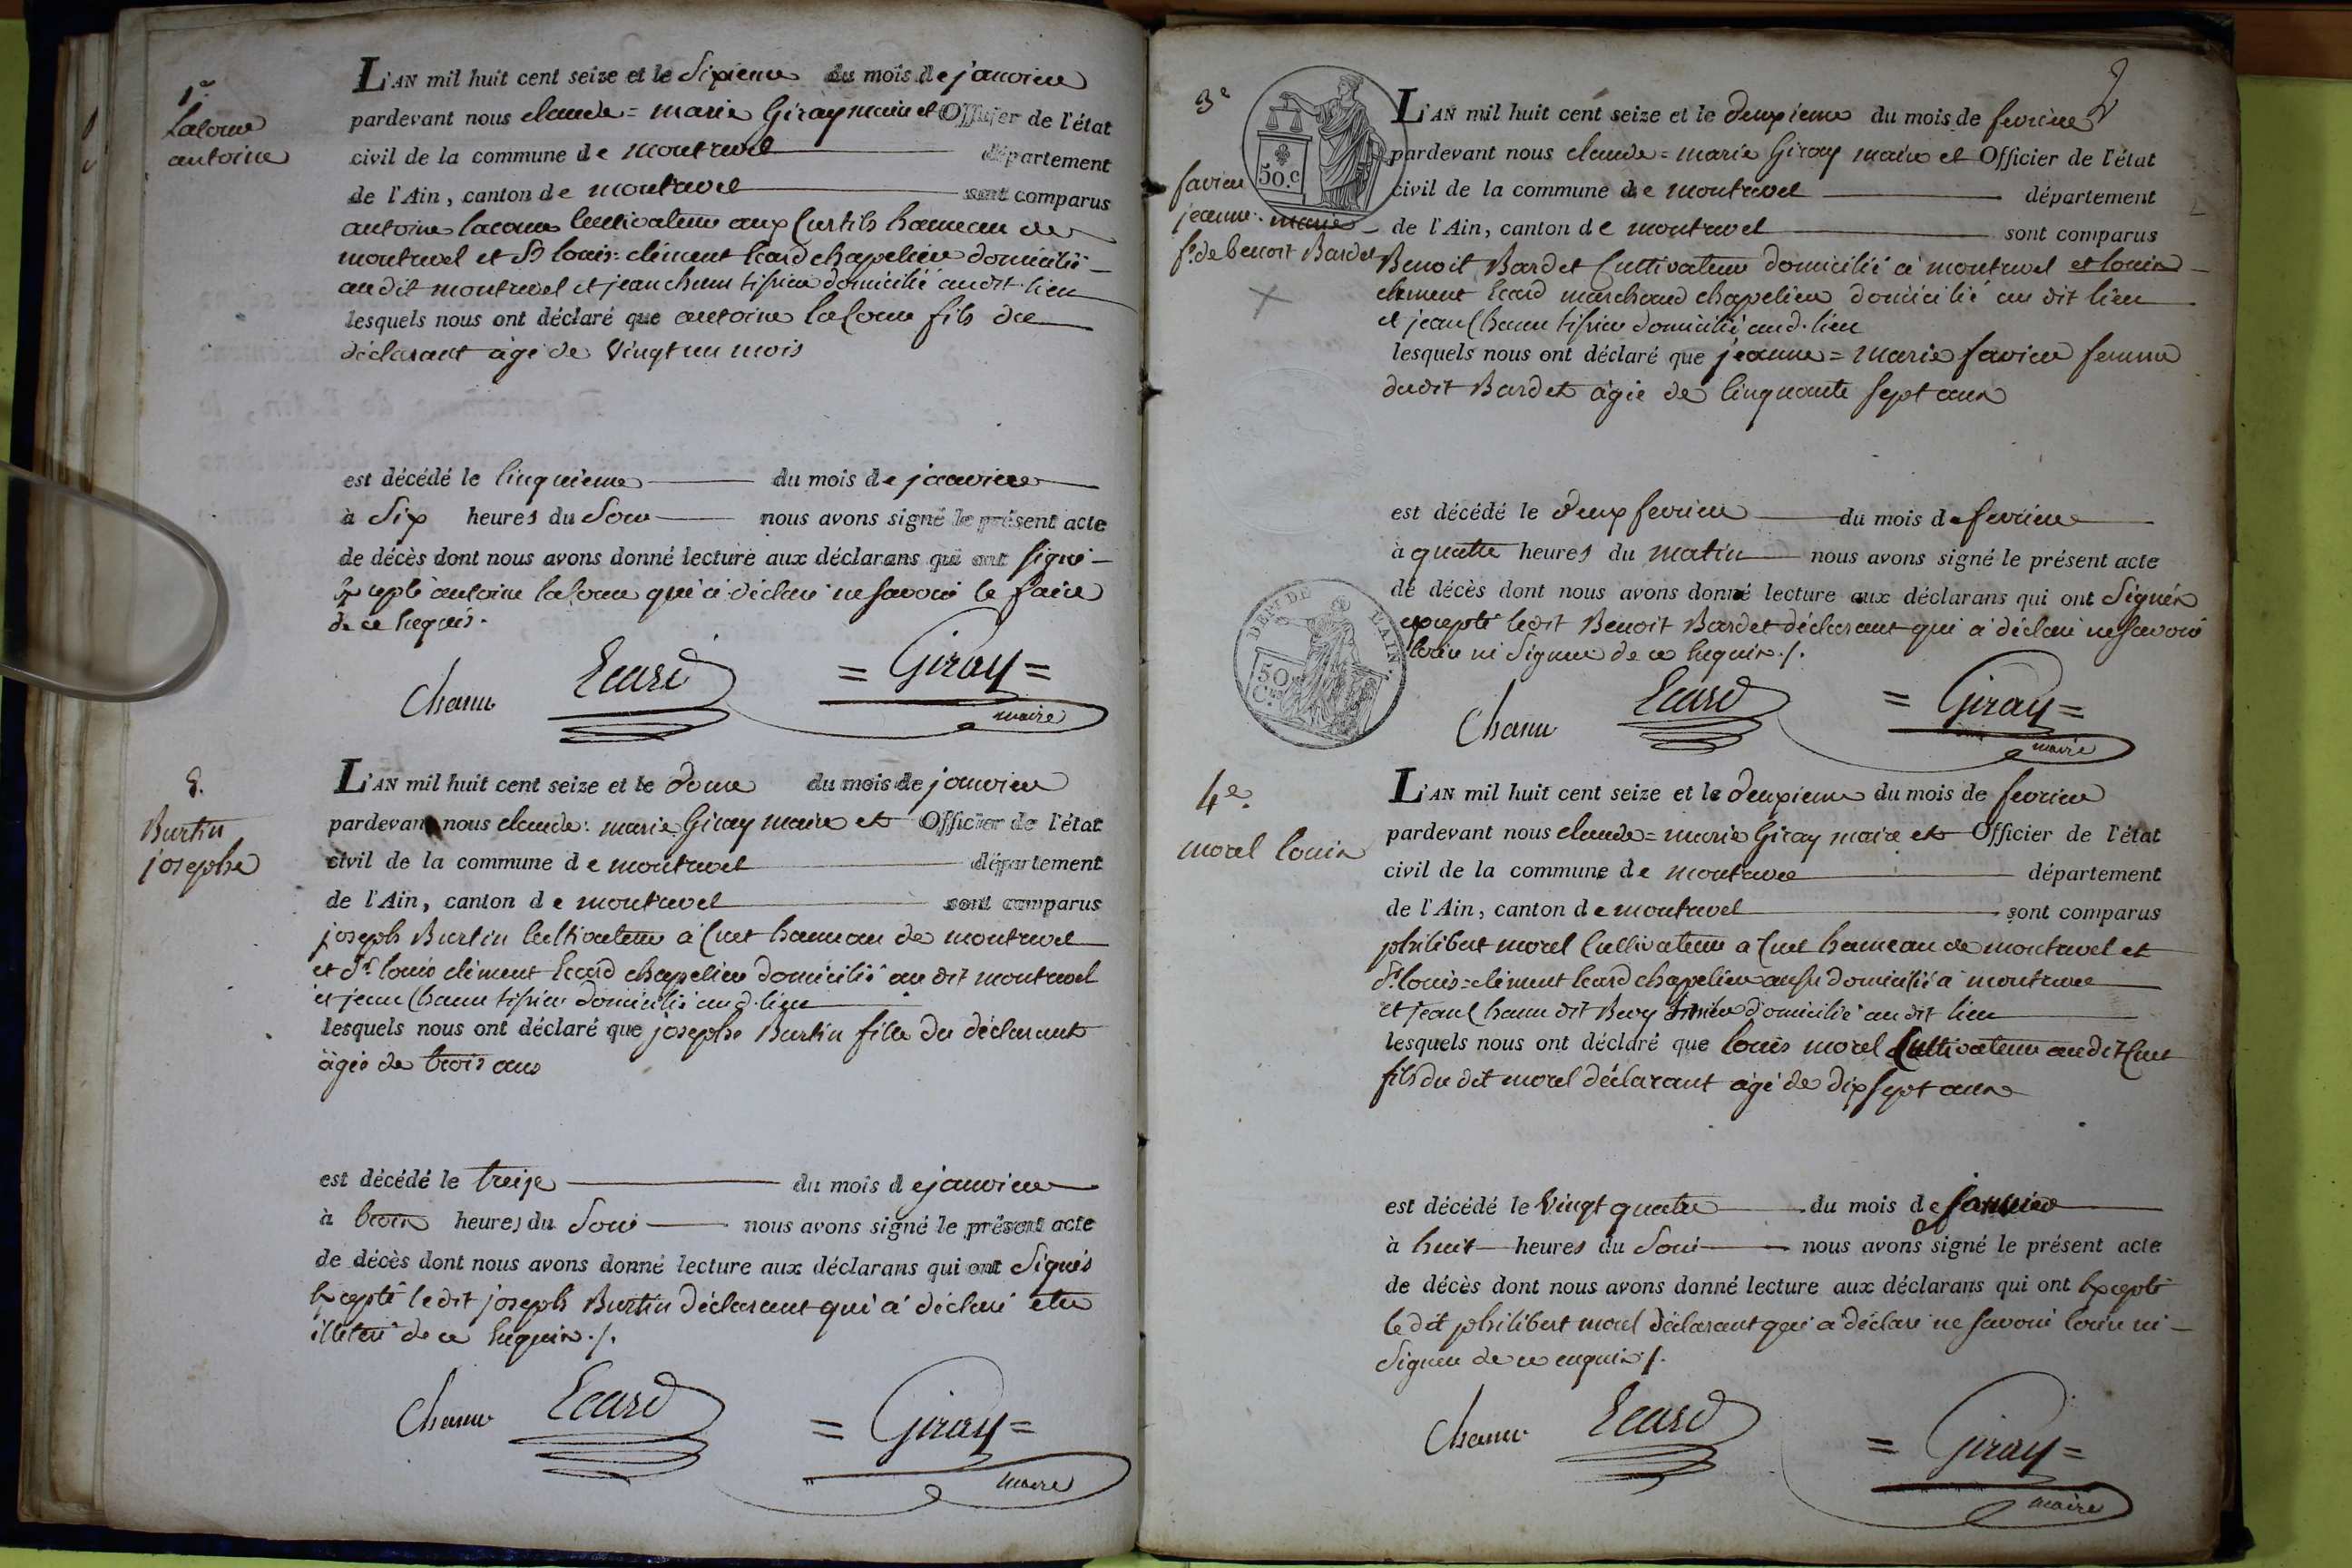 1er
Lacome
antoine
L'AN mil huit cent seize et le Sixieme du mois de janvier
pardevant nous claude = marie Giray maire et Officier de l'état
civil de la commune de montrevel département
de l'Ain, canton de montrevel sont comparus
antoine lacome Cultivateur aux Curtils hameau de
montrevel et Sr louis = clément Ecard chapelier domicilié
audit montrevel et jean chanu tissier domicilié audit lieu
lesquels nous ont déclaré que antoine lacome fils du
déclarant agé de vingt un mois
est décédé le Cinquieme du mois de janvier
à Six heures du Soir nous avons signé le présent acte
de décès dont nous avons donné lecture aux déclarans qui ont signé
Excepté antoine lacome qui a déclaré ne savoir le faire
de ce Requis.
Chanu Ecard = Giray =
maire
2.
Burtin
josephe
L'AN mil huit cent seize et le du mois de janvier
pardevant nous claude = marie Giray maire et Officier de l'état
civil de la commune de montrevel département
de l'Ain, canton de montrevel sont comparus
joseph Burtin Cultivateur à Cuet hameau de montrevel
et Sr louis clément Ecard chapelier domicilié au dit montrevel
et jean Chanu tissier domicilié aud. lieu
lesquels nous ont déclaré que josephe Burtin fille du déclarant
agée de trois ans
est décédé le treize du mois de janvier
à trois heures du Soir nous avons signé le présent acte
de décès dont nous avons donné lecture aux déclarans qui ont Signés
Excepté ledit joseph Burtin déclarant qui a déclaré etre
illetré de ce Requis ./.
Chanu Ecard = Giray =
maire
2
3e
favier
jeanne = marie
fe. de benoit Bardet
50.c
L'AN mil huit cent seize et le deuxieme du mois de fevrier
pardevant nous claude = marie Giray maire et Officier de l'état
civil de la commune de montrevel département
de l'Ain, canton de montrevel sont comparus
Benoit Bardet Cultivateur domicilié à montrevel et louis
clement Ecard marchand chapelier domicilié au dit lieu
et jean Chanu tissier domicilié aud. lieu
lesquels nous ont déclaré que jeanne = marie favier femme
dudit Bardet agée de Cinquante sept ans
est décédé le deux fevrier du mois de fevrier
à quatre heures du matin nous avons signé le présent acte
de décès dont nous avons donné lecture aux déclarans qui ont Signés
excepté ledit Benoit Bardet déclarant qui a déclaré ne savoir
Ecrire ni Signer de ce Requis ./.
DEPt DE L'AIN.
50
Ces
Chanu Ecard = Giray =
maire
4e.
morel louis
L'AN mil huit cent seize et le deuxieme du mois de fevrier
pardevant nous claude = marie Giray maire et Officier de l'état
civil de la commune de montrevel département
de l'Ain, canton de montrevel sont comparus
philibert morel Cultivateur a Cuet hameau de montrevel et
Sr louis = clément Ecard chapelier aussi domicilié à montrevel
et jean Chanu dit domicilié au dit lieu
lesquels nous ont déclaré que louis morel Cultivateur audit Cuet
fils du dit morel déclarant agé de dix sept ans
est décédé le Vingt quatre du mois de janvier
à huit heures du Soir nous avons signé le présent acte
de décès dont nous avons donné lecture aux déclarans qui ont Excepté
le dit philibert morel déclarant qui a déclaré ne savoir Ecrire ni
Signer de ce enquis ./.
Chanu Ecard = Giray =
maire